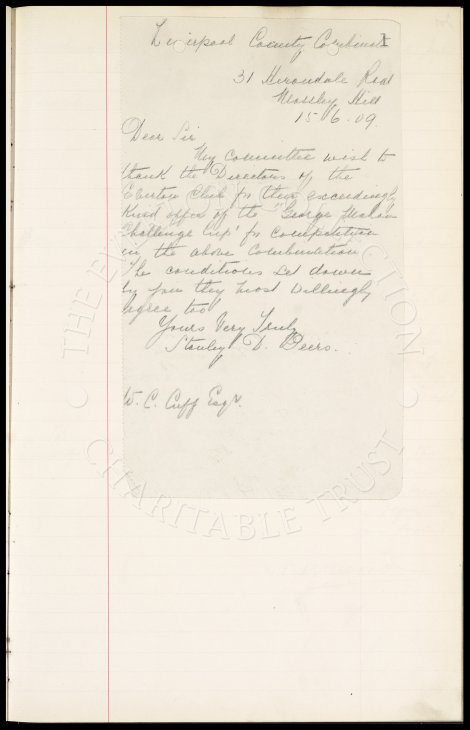 Liverpool County Combination
31 Herondale Road
Mossley Hill
15 6. 09.
Dear Sir
My Committee wish to
thank the Directors of the
Everton Club for their exceedingly
kind offer of the "George Mahon
Challenge Cup" for Competition
in the above Combination
The conditions set down
by you they most willingly
agree too
Yours Very Truly
Stanley D. Beers.
W. C. Cuff Esqr.
THE EV CTION
CHARITABLE TRUST